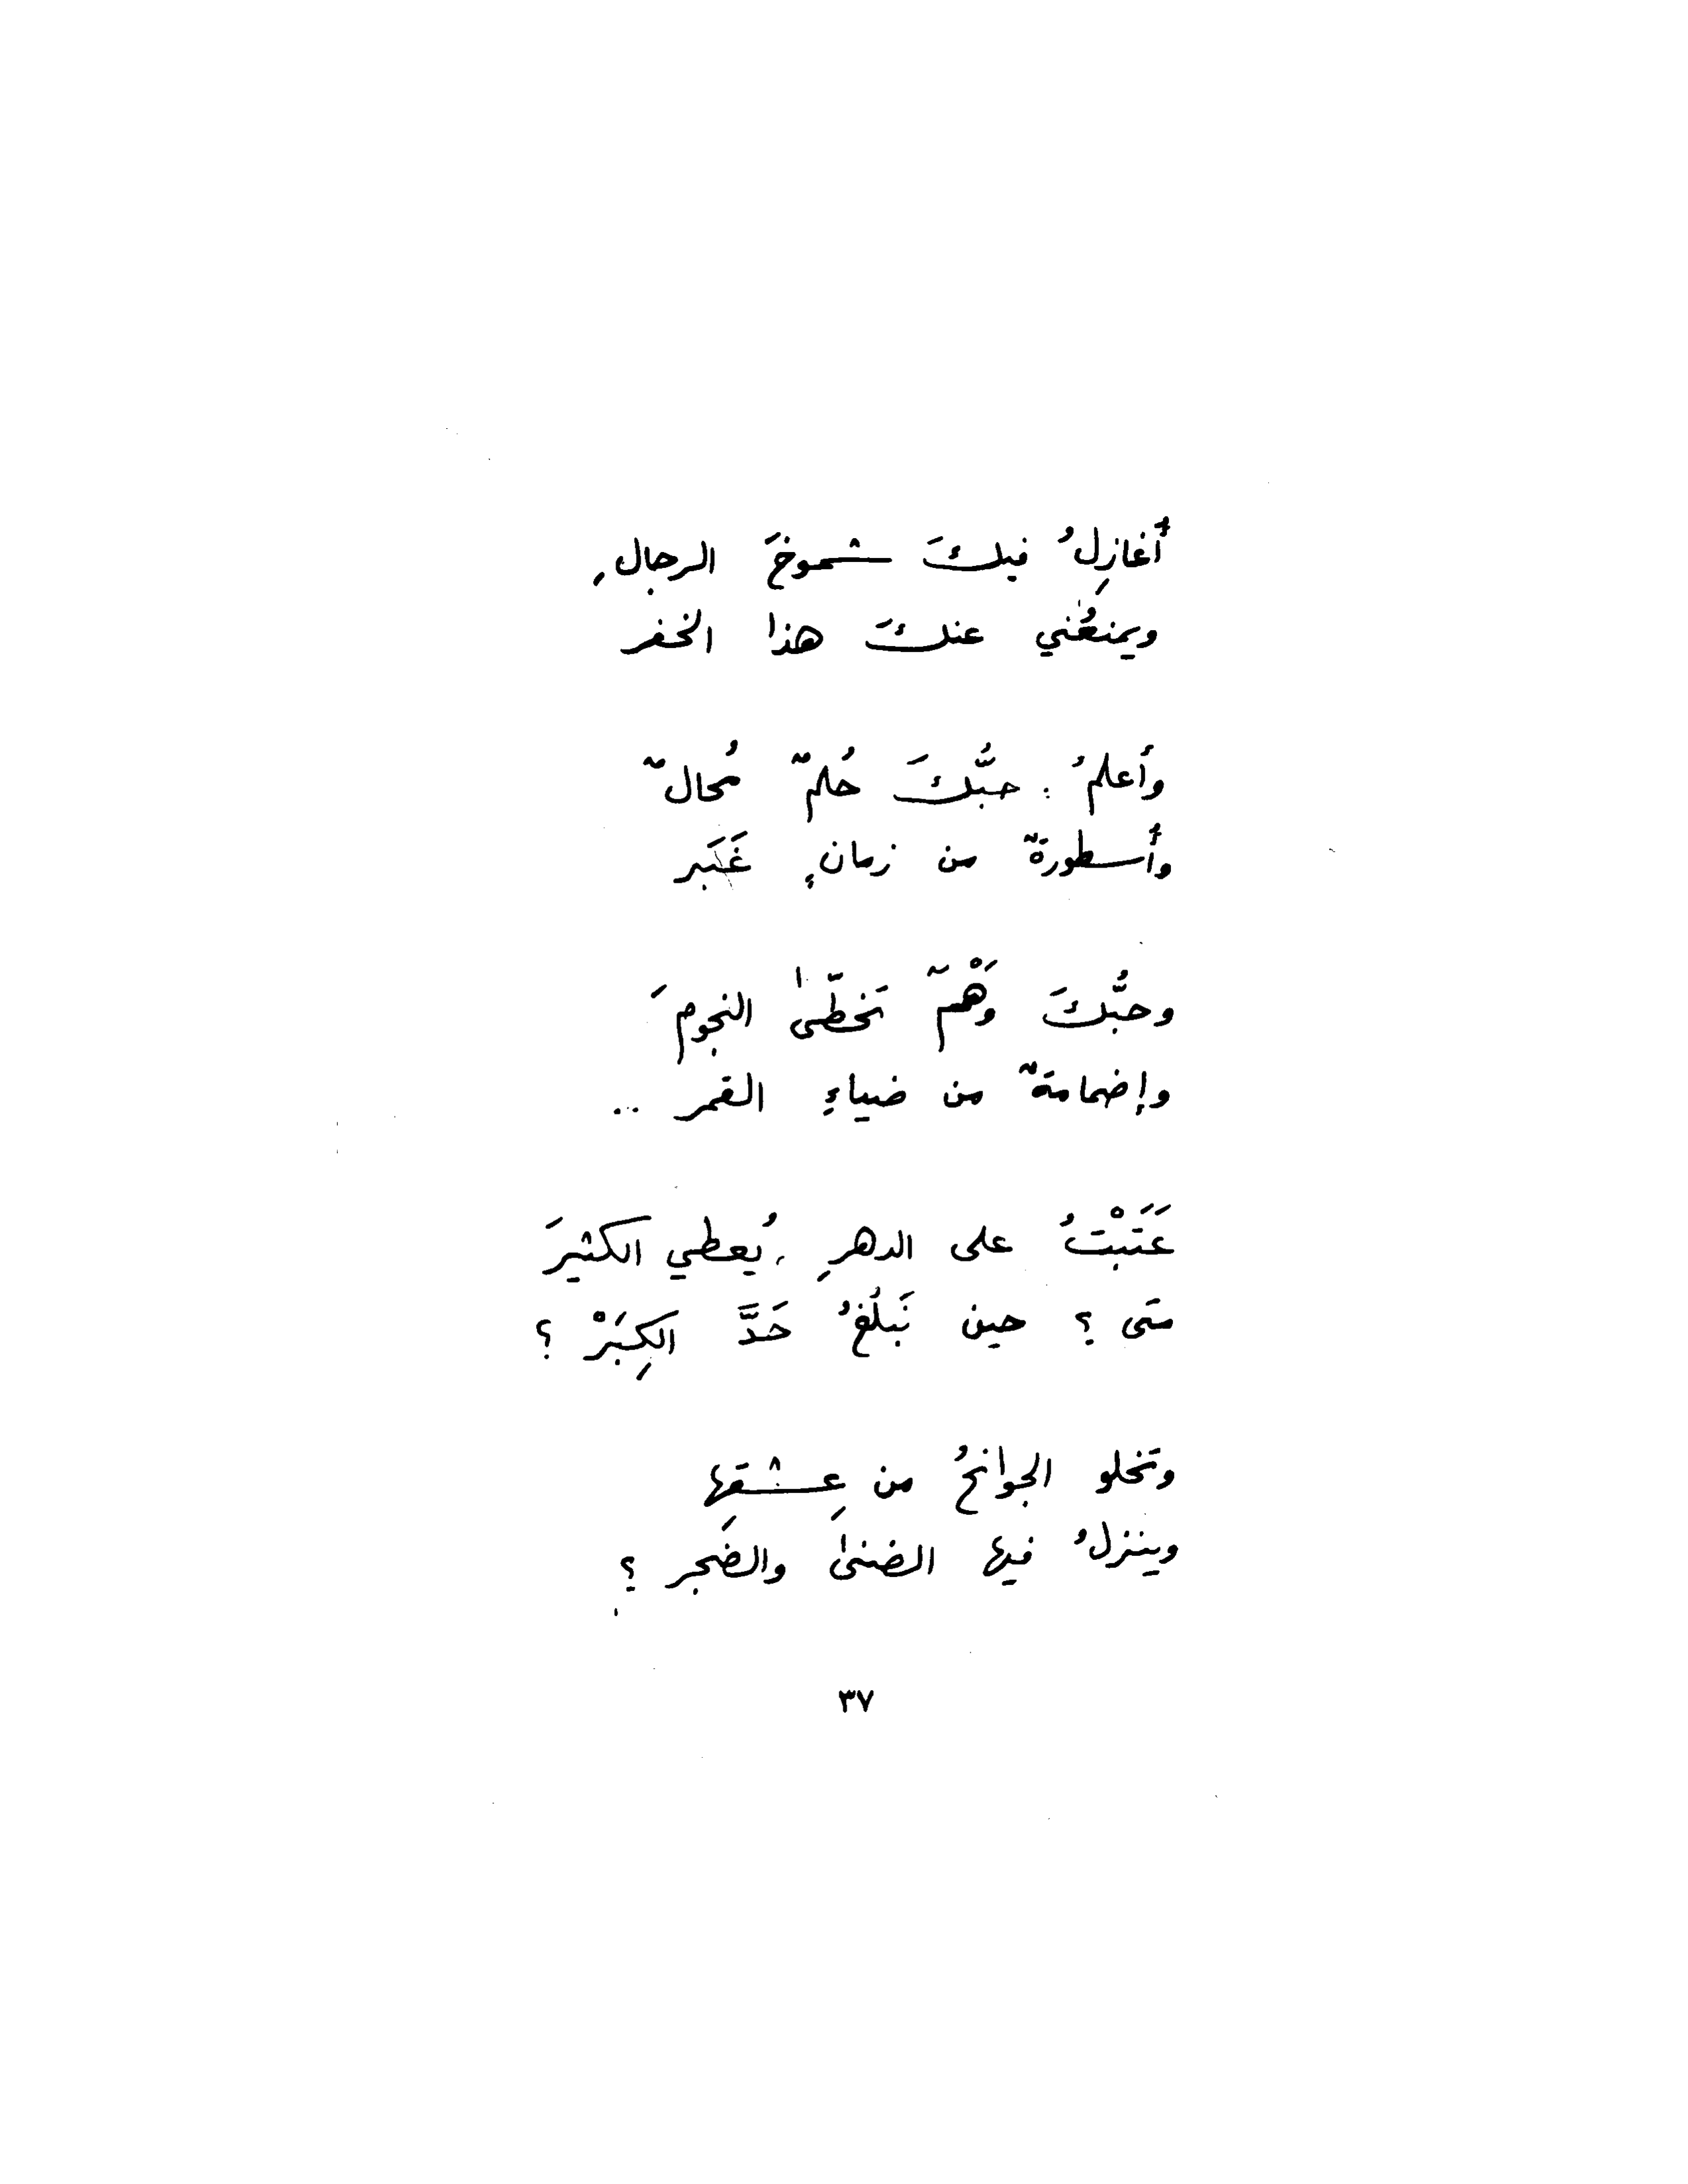 أُغازِلُ فيكَ شموخَ الرجالِ
ويمنعُني عنكَ هذا الخفر
وأعلمُ : حبُّكَ حُلمٌ مُحالٌ
وأُسطورةٌ من زمانٍ غَبَر
وحبُّكَ وَهْمٌ تخطّىٰ النجومَ
وإضمامةٌ من ضياءِ القمر ..
عَتَبْتُ على الدهرِ ، يُعطي الكثيرَ
متى ؟ حين نَبلُغُ حَدَّ الكِبَرْ ؟
وتخلو الجوانحُ من عِشقِها
وينزلُ فيها الضنىٰ والضَجر ؟
٣٧